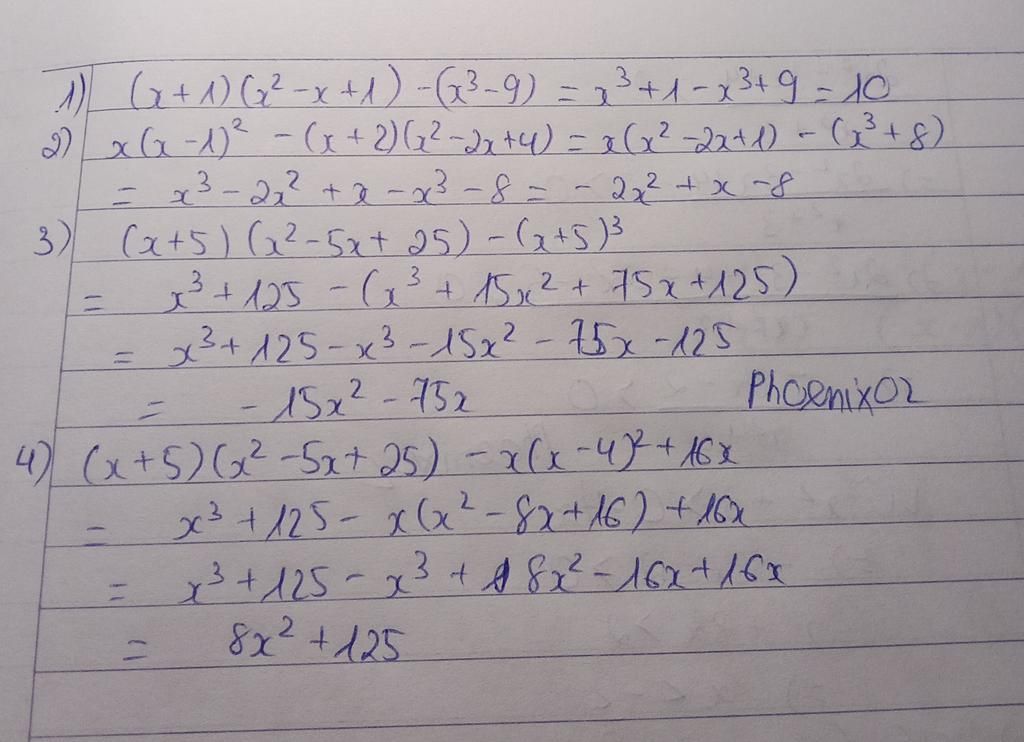 1) (x+1)(x² - x + 1) - (x³ - 9) = x³ + 1 - x³ + 9 = 10
2) x(x-1)² - (x+2)(x² - 2x + 4) = x(x² - 2x + 1) - (x³ + 8)
= x³ - 2x² + x - x³ - 8 = - 2x² + x - 8
3) (x+5)(x² - 5x + 25) - (x+5)³
= x³ + 125 - (x³ + 15x² + 75x + 125)
= x³ + 125 - x³ - 15x² - 75x - 125
= - 15x² - 75x Phoenix02
4) (x+5)(x² - 5x + 25) - x(x-4)² + 16x
= x³ + 125 - x(x² - 8x + 16) + 16x
= x³ + 125 - x³ + 8x² - 16x + 16x
= 8x² + 125